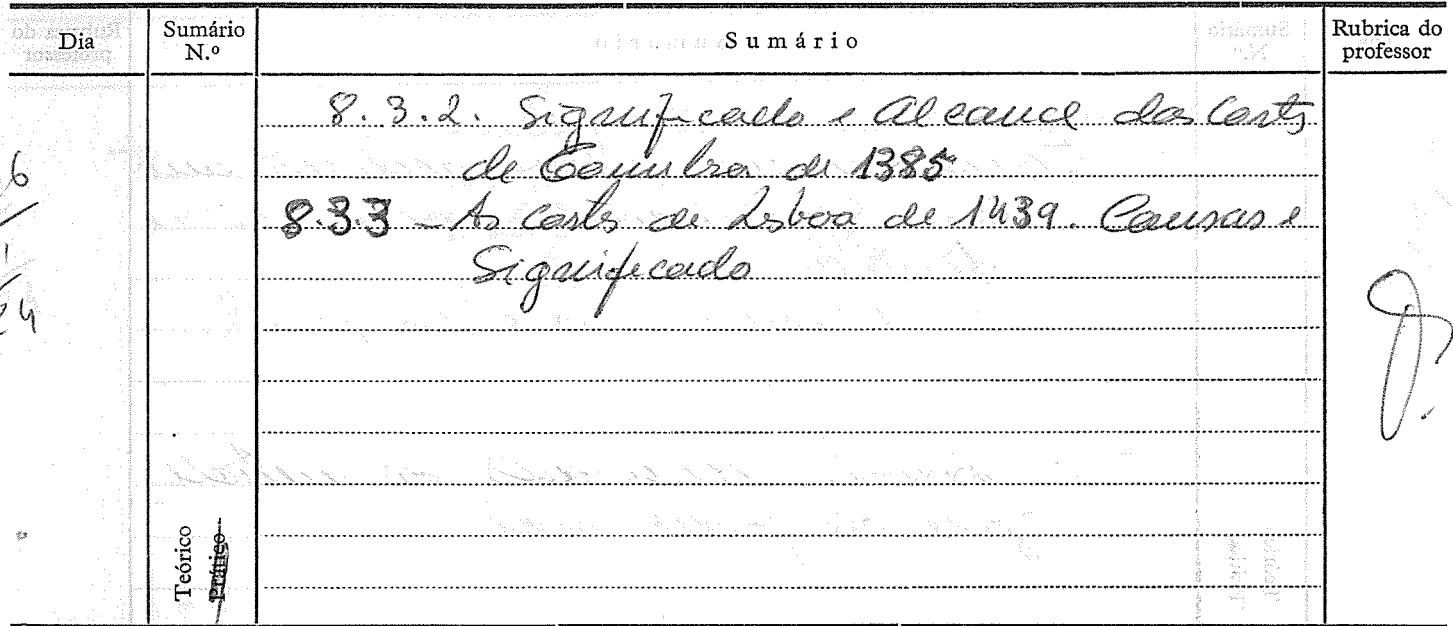 Dia
Sumário N.º
Sumário
Rubrica do professor
8.3.2. Significado e Alcance das Cortes
de Coimbra de 1385
8.3.3 - As Cortes de Lisboa de 1439. Causas e
Significado
6
/
1
/
24
Teórico
Prático